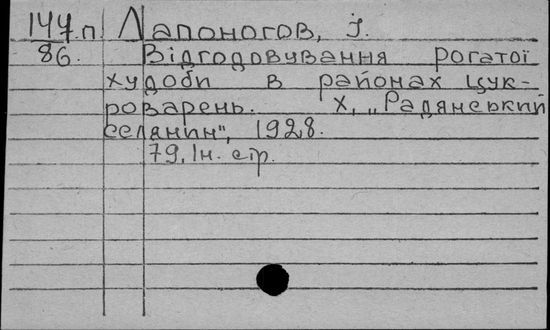 147.п. Лапоногов, І.
86. Відгодовування рогатої
худоби в районах цук-
роварень. Х, „Радянський
селянин", 1928.
79, Ін. стр.